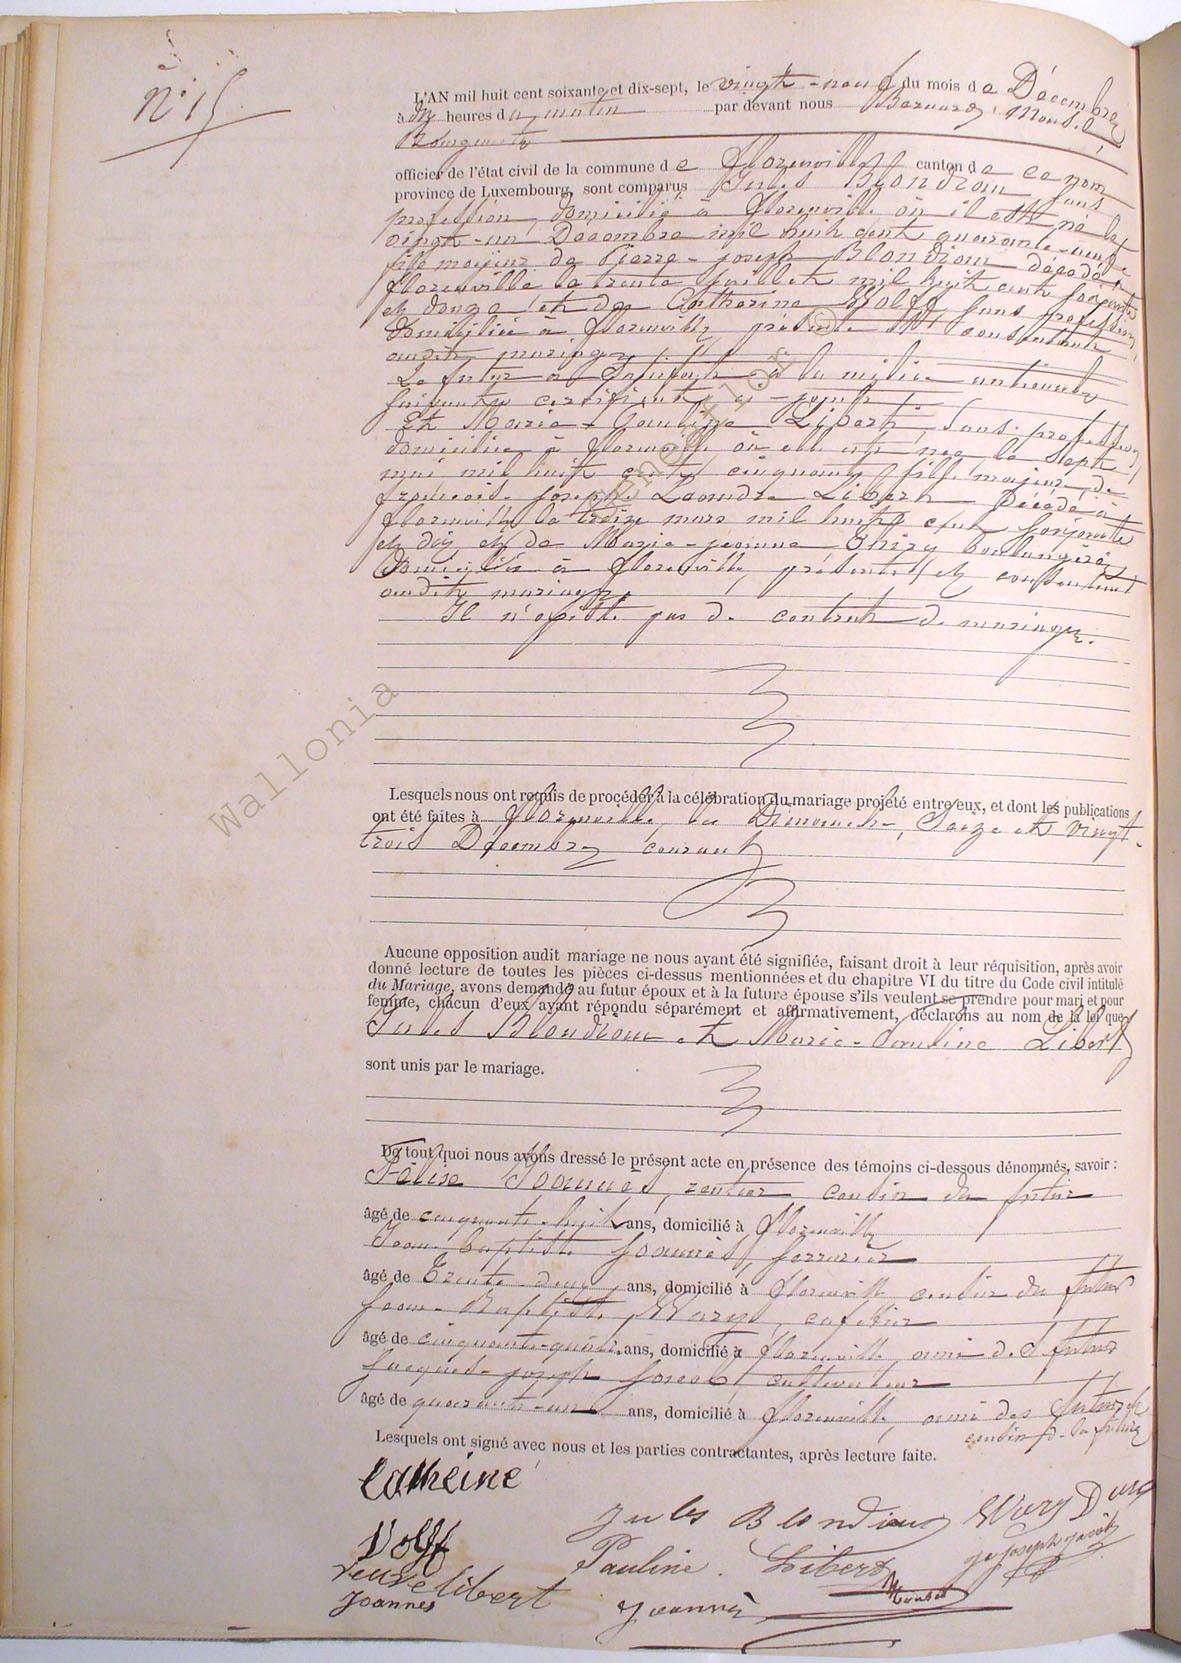 N° 15
L'AN mil huit cent soixante et dix-sept, le vingt-neuf du mois de Décembre
à dix heures du matin par devant nous Bernard,
Bourgmestre
officier de l'état civil de la commune de Florenville canton de ce nom
province de Luxembourg, sont comparus Jules Blondiau sans
profession, domicilié à Florenville où il est né le
vingt-un Décembre mil huit cent quarante-neuf
fils majeur de Pierre-joseph Blondiau décédé à
florenville le trente juillet mil huit cent soixante
et douze et de Catherine Wolff sans profession,
domiciliée à florenville, présente et consentante
audit mariage.
Le futur a satisfait à la milice nationale
suivant certificat ci-joint
Et Marie-Pauline Libert, sans profession,
domiciliée à florenville où elle est née le sept
mai mil huit cent cinquante, fille majeure de
françois-joseph Léandre Libert décédé à
florenville le treize mars mil huit cent soixante
et dix et de Marie-jeanne Thiry boulangère,
domiciliée à florenville, présente et consentant
audit mariage.
Il n'existe pas de contrat de mariage.
Wallonia
Lesquels nous ont requis de procéder à la célébration du mariage projeté entre eux, et dont les publications
ont été faites à florenville, les Dimanche, Seize et vingt-
trois Décembre courant
Aucune opposition audit mariage ne nous ayant été signifiée, faisant droit à leur réquisition, après avoir
donné lecture de toutes les pièces ci-dessus mentionnées et du chapitre VI du titre du Code civil intitulé
du Mariage, avons demandé au futur époux et à la future épouse s'ils veulent se prendre pour mari et pour
femme, chacun d'eux ayant répondu séparément et affirmativement, déclarons au nom de la loi que
Jules Blondiau et Marie-Pauline Libert
sont unis par le mariage.
De tout quoi nous avons dressé le présent acte en présence des témoins ci-dessous dénommés, savoir :
Joannès, rentier cousin du futur
âgé de cinquante-huit ans, domicilié à florenville
Jean-baptiste joannès, serrurier
âgé de Trente-deux ans, domicilié à florenville cousin du futur
Jean-Baptiste Wary, cafetier
âgé de cinquante-quatre ans, domicilié à florenville, ami des futurs
Jacques-joseph jacob, cultivateur
âgé de quarante-un ans, domicilié à florenville, ami des futurs et
cousin de la future
Lesquels ont signé avec nous et les parties contractantes, après lecture faite.
Catherine
Jules Blondiau Wary
Volff Pauline Libert joseph jacob
veuve libert
Joannes Joannès